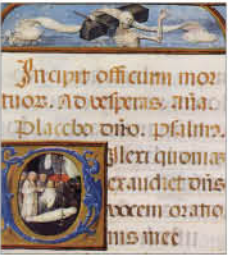 Incipit officium mor
tuor. Ad vesperas, añac
Placebo dño. psalm.
Dilexi quoniaz
exaudiet dñs
vocem oratio
nis mee